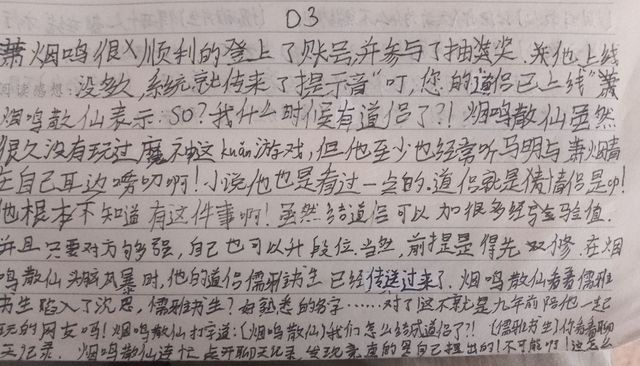 03
萧烟鸣很顺利的登上了账号,并参与了抽奖奖.来他上线
没多久,系统就传来了提示音"叮,您的道侣已上线"萧
烟鸣散仙表示:SO?我什么时候有道侣了?!烟鸣散仙虽然
很久没有玩过魔神这kuǎn游戏,但他至少也经常听马明与萧烟晴
在自己耳边唠叨啊!小说他也是看过一点的.道侣就是情侣是叩!
他根本不知道有这件事啊!虽然结道侣可以加很多经验值.
并且只要对方够强,自己也可以升段位.当然,前提是得先双修.在烟
鸣散仙头脑风暴时,他的道侣儒雅书生已经传送过来了.烟鸣散仙看着儒雅
书生陷入了沉思,儒雅书生?好熟悉的名字……对了!这不就是九年前陪他一起
玩的网友吗!烟鸣散仙打字道:(烟鸣散仙)我们怎么结成道侣了?!(儒雅书生)你看看聊
天记录.烟鸣散仙连忙点开聊天记录,发现竟真的是自己提出的!不可能啊!这怎么